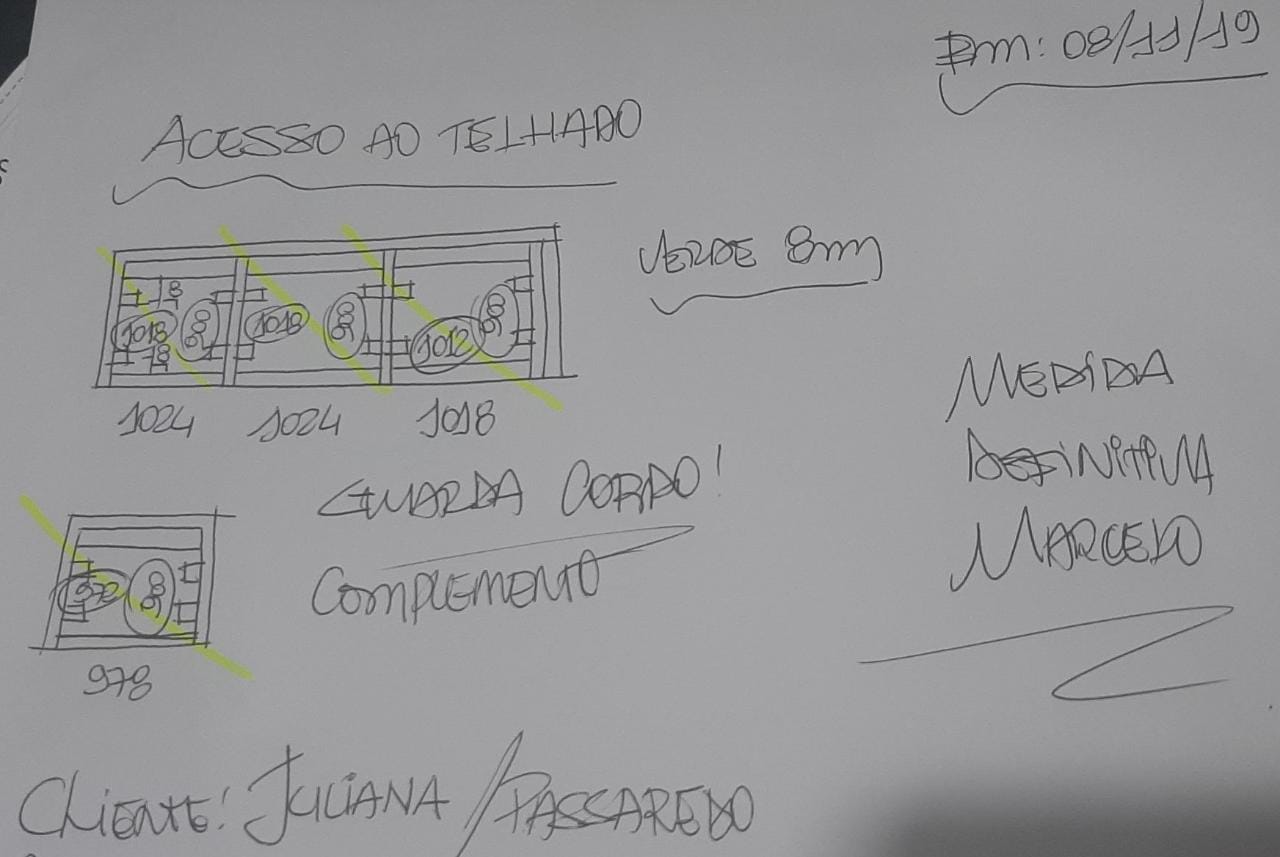 Em: 08/11/19
ACESSO AO TELHADO
VERDE 8mm
18
1018 1018 1012
18
1024 1024 1018
MEDIDA
DEFINITIVA
MARCELO
GUARDA CORPO!
COMPLEMENTO
972
978
CLIENTE: JULIANA / PASSAREDO